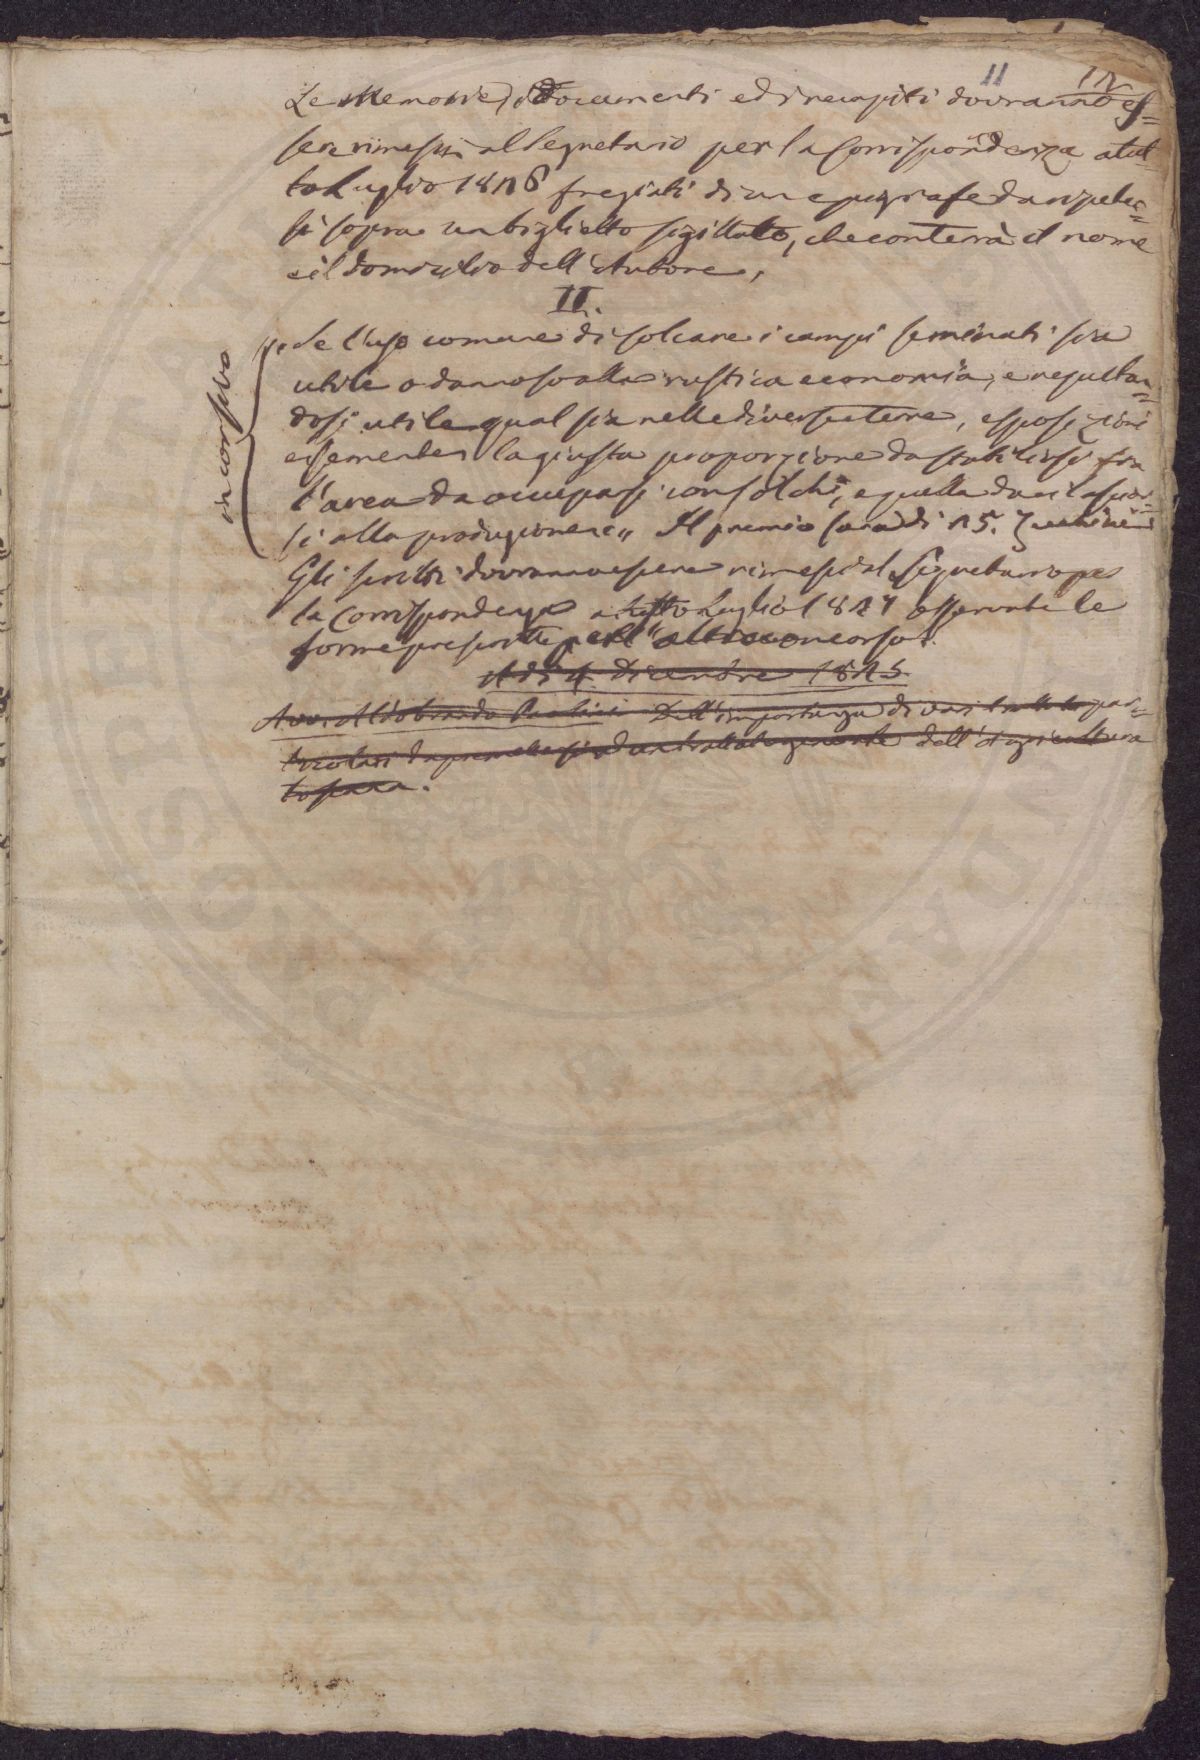 11 12
Le Memorie, i Documenti ed i recapiti dovranno es=
sere rimessi al Segretario per la Corrispondenza a tut=
to Luglio 1826 fregiati di un epigrafe da ripeter=
si sopra un biglietto sigillato, che conterrà il nome
e il domicilio dell'Autore,
II.
in corsivo
"Se l'uso comune di solcare i campi seminati sia
utile o dannoso alla rustica economia, e resultan=
dosi utile qual sia nelle diverse terre, esposizioni
e sementes la giusta proporzione da stabilirsi fra
l'area da occuparsi con solchi, e quella da rilasciar=
si alla produzione" Il premio sarà di 25. Zecchini
Gli scritti dovranno essere rimessi al Segretario per
la Corrispondenza a tutto Luglio 1827 osservate le
forme prescritte per l'altro concorso.
Adì 4. Dicembre 1825.
Avv. Aldobrando Paolini Dell'importanza di vari trattati par=
ticolari da premettersi ad un trattato generale dell'Agricoltura
toscana.